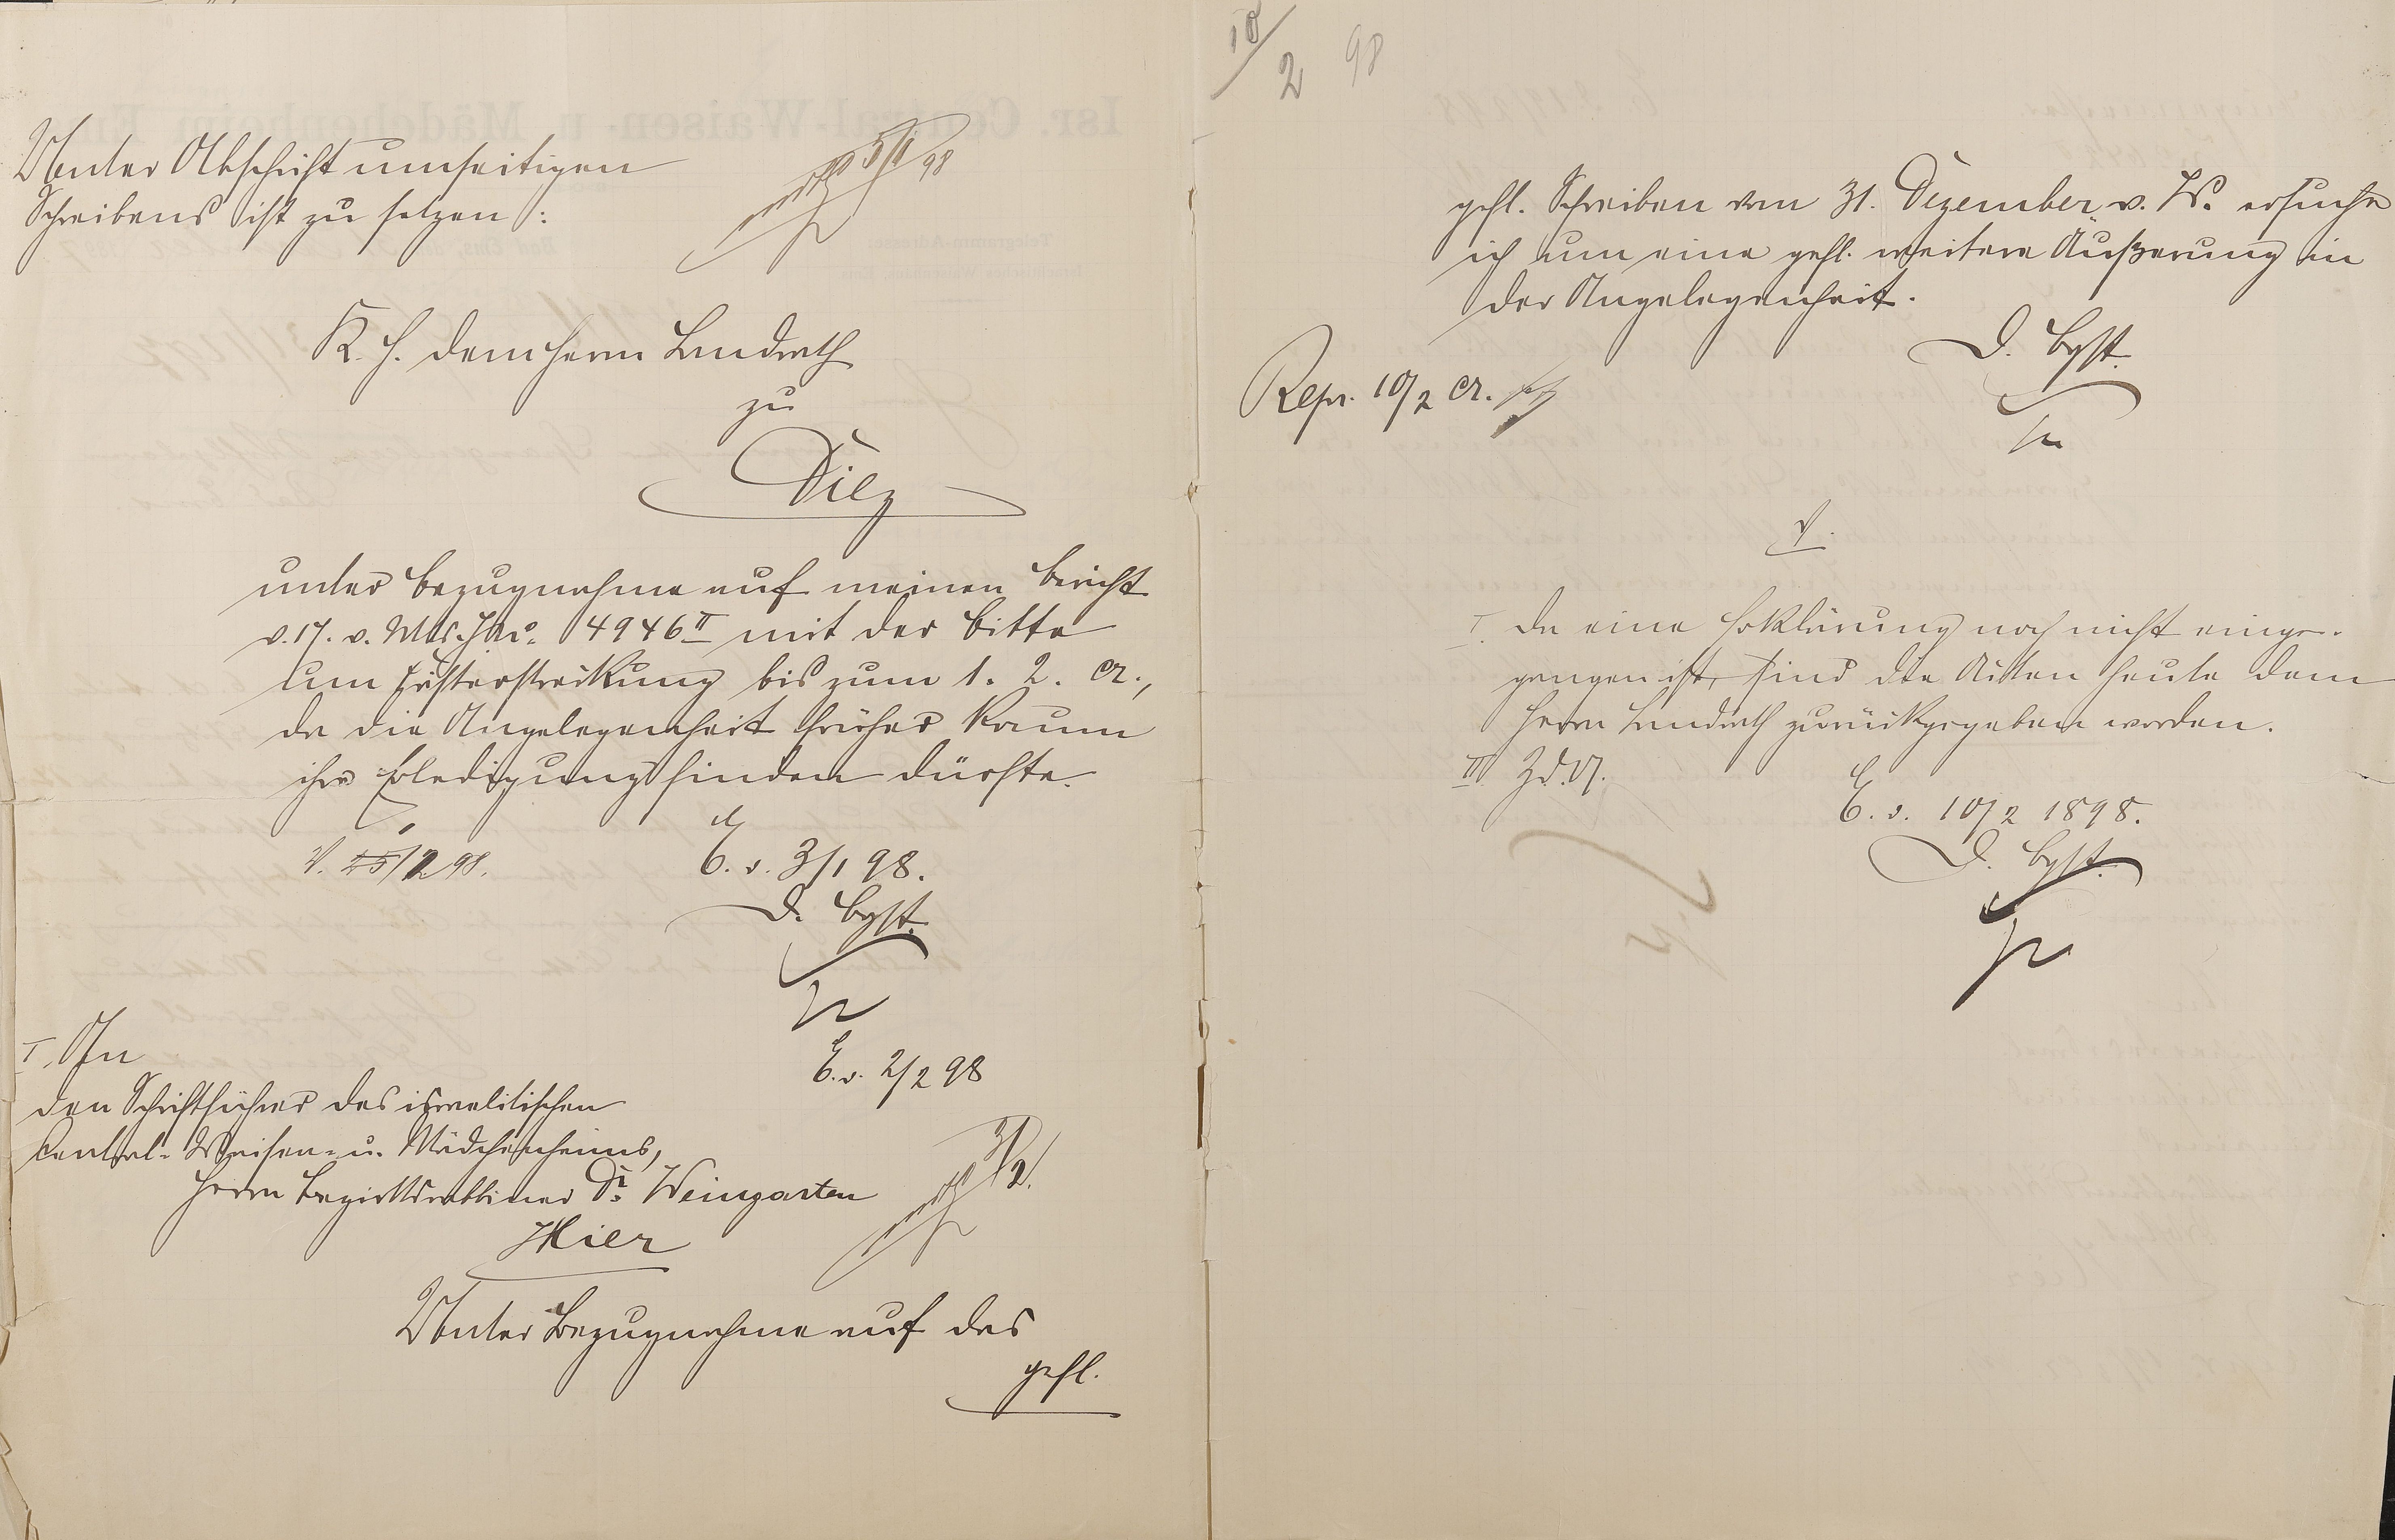 Unter Abschrift umseitigen
Schreibens ist zu setzen:
5/1 98
K. H. dem Herrn Landrath
zu
Diez
unter Bezugnahme auf meinen Bericht
v. 17. v. Mts. J.No. 4946 II mit der Bitte
um Fristerstreckung bis zum 1. 2. cr.,
da die Angelegenheit früher kaum
ihre Erledigung finden dürfte.
E. d. 3/1 98.
V. 25/2 98.
D. Bgst.
E. d. 2/2 98
I. An
den Schriftführer des israelitischen
Central-Waisen- u. Mädchenheims,
Herrn Bezirksrabbiner Dr. Weingarten
Hier
3/2.
Unter Bezugnahme auf das
gefl.
10/2 98
gefl. Schreiben vom 31. Dezember v. Js. ersuche
ich um eine gefl. weitere Äußerung in
der Angelegenheit.
D. Bgst.
Repr. 10/2 cr.
V.
I. Da eine Erklärung noch nicht einge-
gangen ist, sind die Akten heute dem
Herrn Landrath zurückgegeben worden.
II Z. d. A.
E. d. 10/2 1898.
D. Bgst.